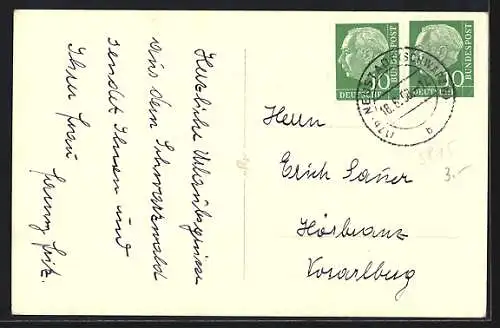 Herzliche Urlaubsgrüsse
aus dem Schwarzwald
sendet Ihnen und
Ihrer Frau
DEUTSCHE BUNDESPOST
10
DEUTSCHE BUNDESPOST
10
(17b) NEUSTADT (SCHWARZW)
b
Herrn
Erich Sauer
Hörbranz
Vorarlberg
3.-